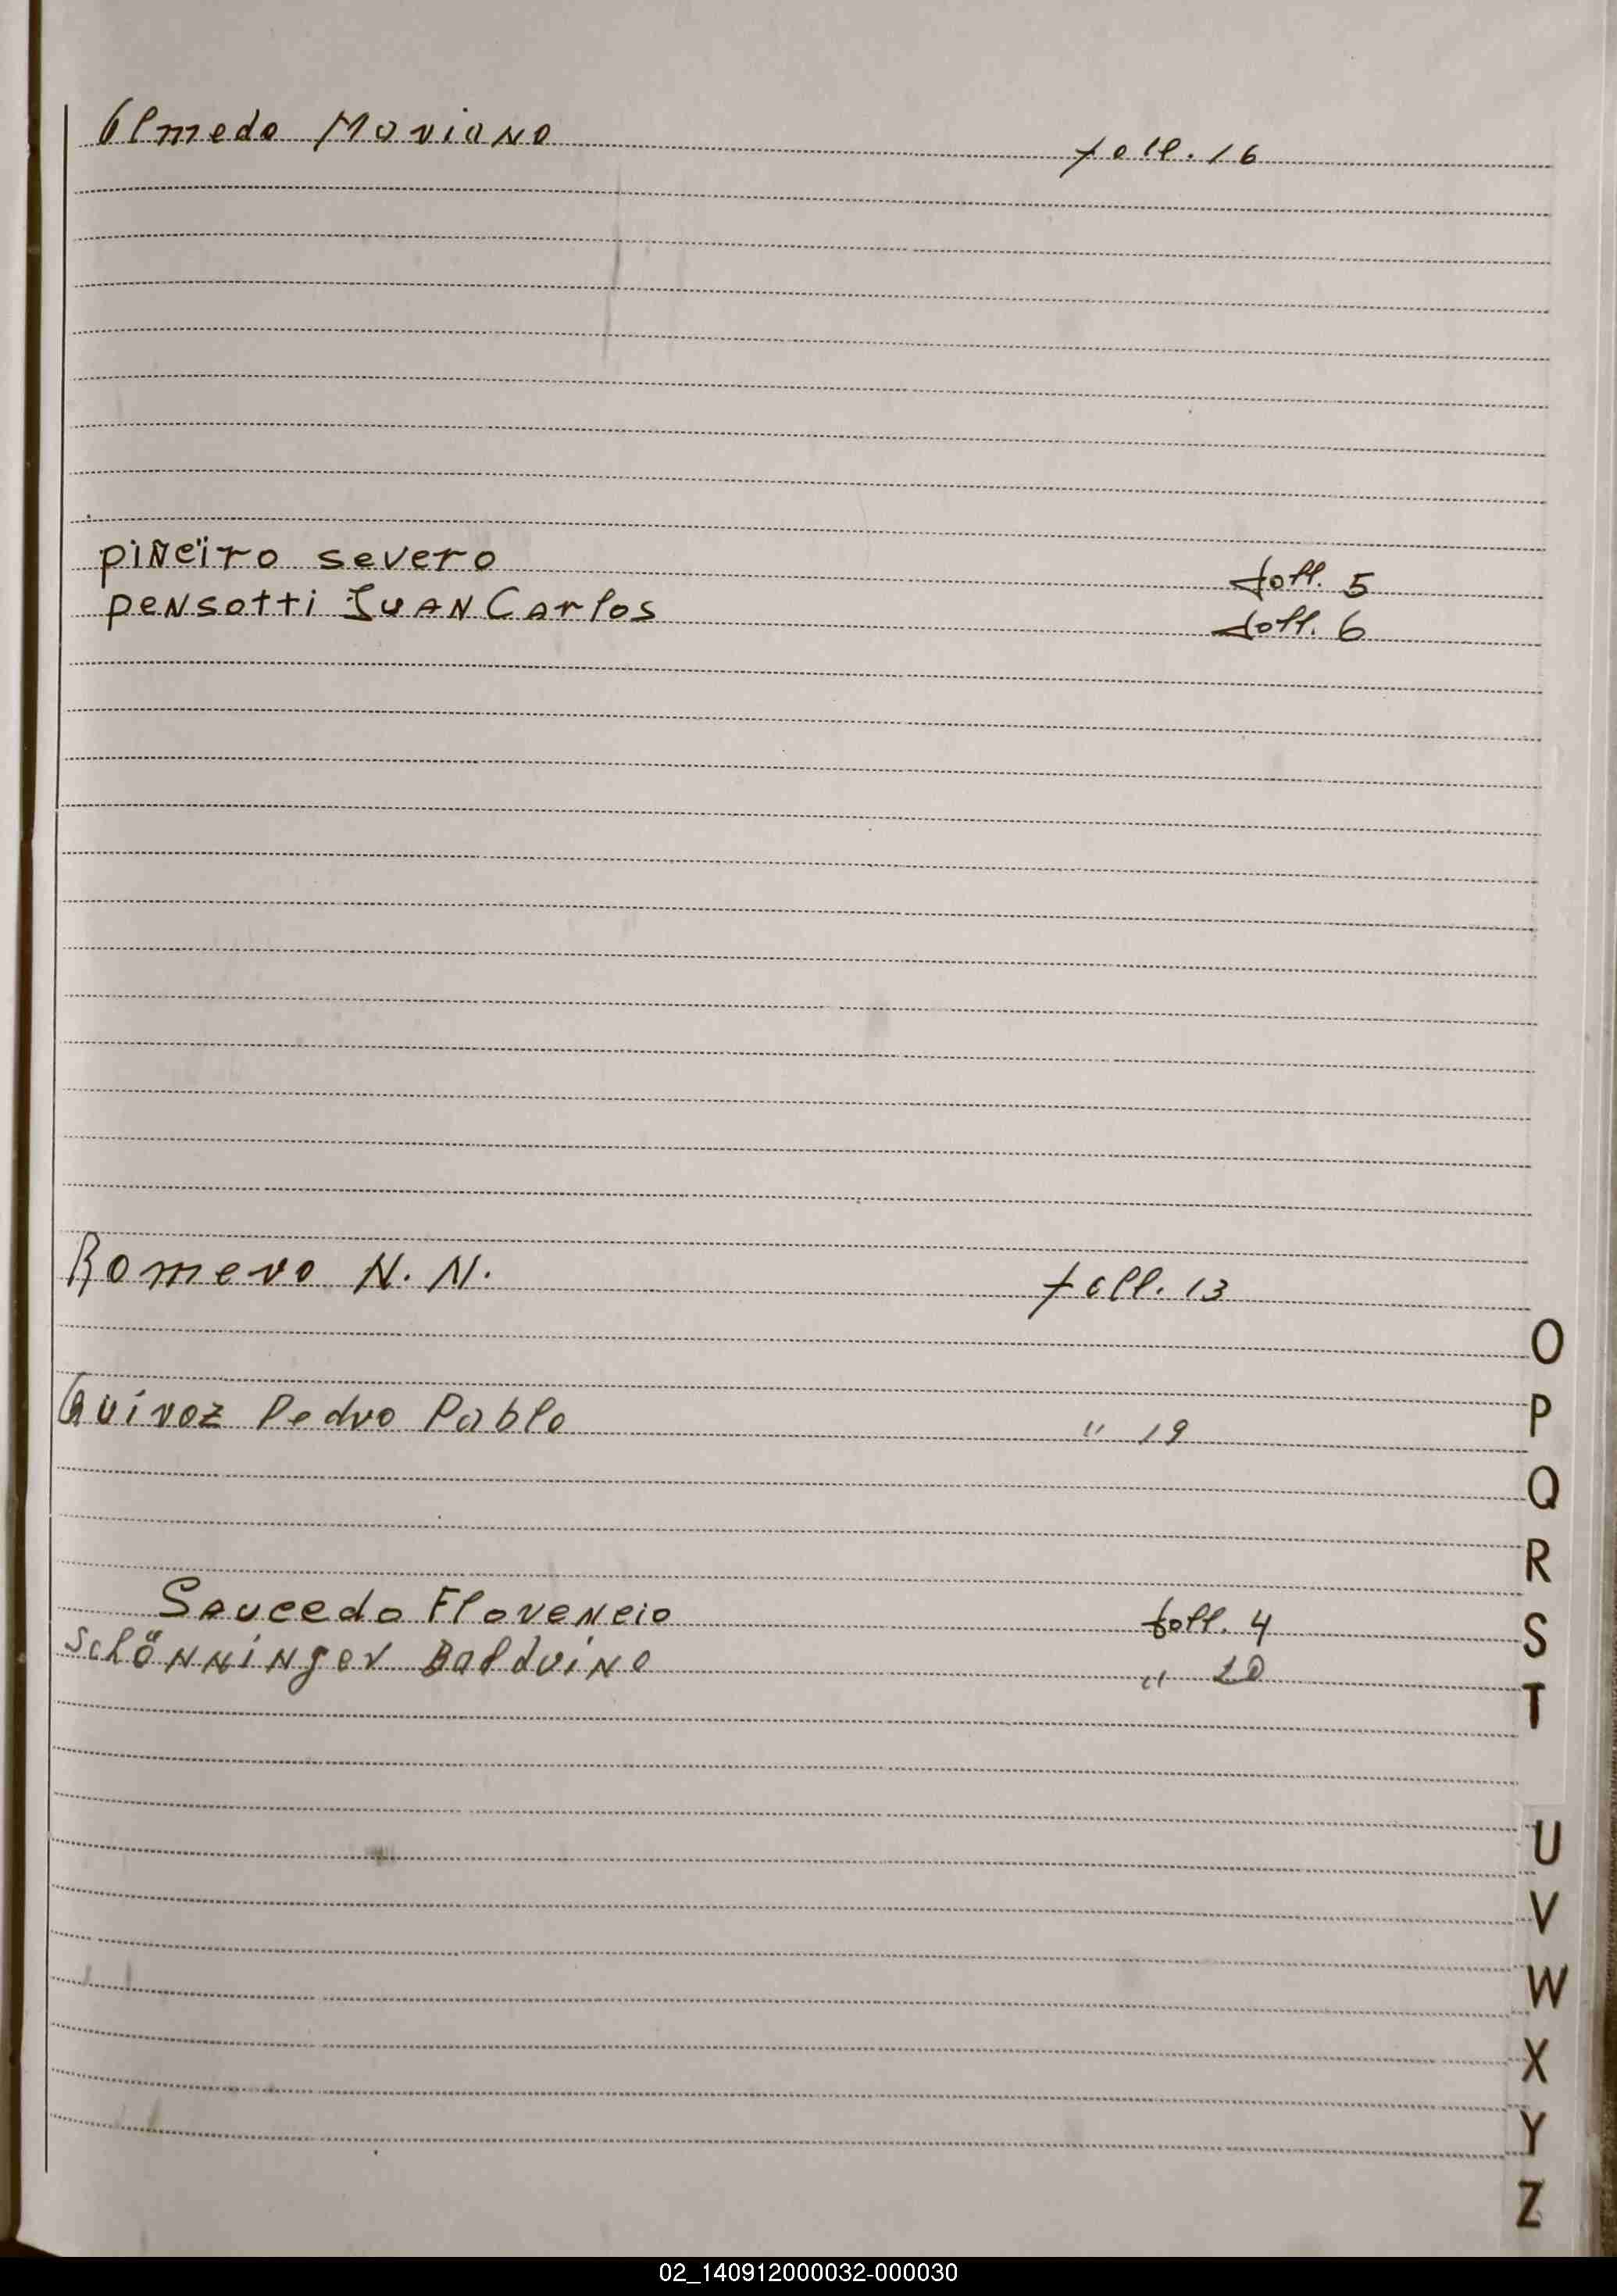 Olmedo Mariano foll. 16
piñeiro severo foll. 5
pensotti JUAN Carlos foll. 6
Romero N. N. foll. 13
O
P
Quiroz Pedro Pablo " 19
Q
R
Saucedo Florencio foll. 4
S
Schönninger Balduino " 20
T
U
V
W
X
Y
Z
02_140912000032-000030